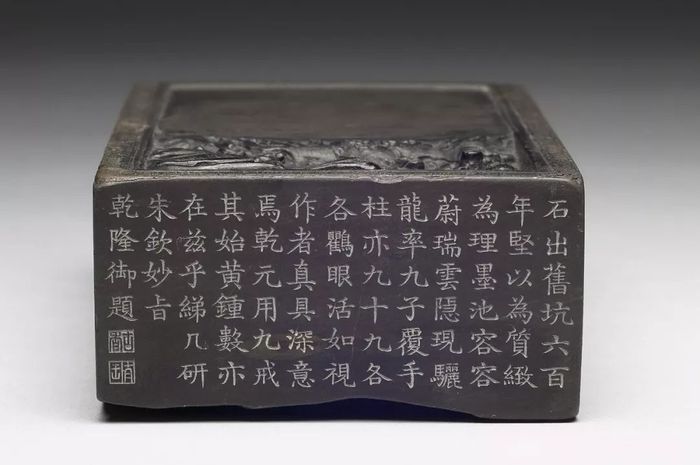 石出舊坑六百
年堅以為質緻
為理墨池容容
蔚瑞雲隱現驪
龍率九子覆手
柱亦九十九各
各鸜眼活如視
作者真具深意
焉乾元用九戒
其始黃鍾數亦
在兹乎綈几研
朱欽妙旨
乾隆御題